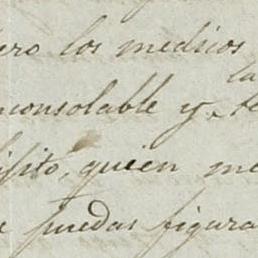 ero los medicos
la
nconsolable y te
isito, quien me
e puedas figura